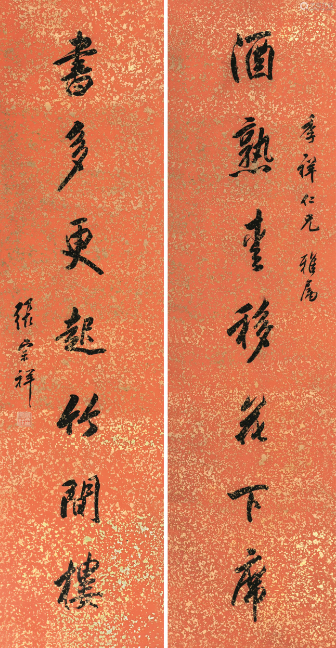 酒熟移花下席
季祥仁兄 雅屬
書多更起竹間樓
張宗祥